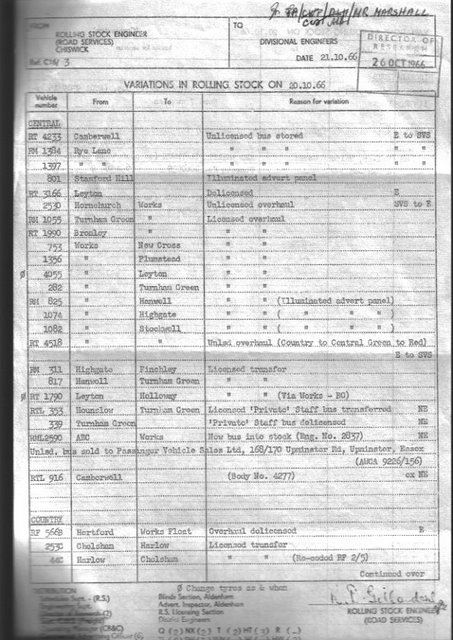 MR MARSHALL
ROLLING STOCK ENGINEER
(ROAD SERVICES)
CHISWICK
TO
DIVISIONAL ENGINEERS
DATE 21.10.66
DIRECTOR OF
RESEARCH
26 OCT 1966
VARIATIONS IN ROLLING STOCK ON 20.10.66
Vehicle number From To Reason for variation
CENTRAL
RT 4233 Camberwell Unlicensed bus stored E to SVS
RM 1384 Rye Lane " " " " "
1397 " " " " " " "
801 Stamford Hill Illuminated advert panel
RT 3166 Leyton Delicensed E
2530 Hornchurch Works Unlicensed overhaul SVS to E
RM 1055 Turnham Green " Licensed overhaul
RT 1990 Bromley " " "
753 Works New Cross " "
1356 " Plumstead " "
Ø 4055 " Leyton " "
282 " Turnham Green " "
RM 825 " Hanwell " " (Illuminated advert panel)
1074 " Highgate " " ( " " " )
1082 " Stockwell " " ( " " " )
RT 4518 " Unlsd overhaul (Country to Central Green to Red)
E to SVS
RM 311 Highgate Finchley Licensed transfer
817 Hanwell Turnham Green " "
Ø RT 1790 Leyton Holloway " " (Via Works - EO)
RTL 353 Hounslow Turnham Green Licensed 'Private' Staff bus transferred NE
339 Turnham Green 'Private' Staff bus delicensed NE
RML2590 AEC Works New bus into stock (Eng. No. 2837) NE
Unlsd. bus sold to Passenger Vehicle Sales Ltd, 168/170 Upminster Rd, Upminster, Essex
(AHGA 9226/156)
RTL 916 Camberwell (Body No. 4277) ex NE
COUNTRY
RF 566B Hertford Works Float Overhaul delicensed E
253C Chelsham Harlow Licensed transfer
Harlow Chelsham " " (Re-coded RF 2/5)
Continued over
DISTRIBUTION
Ø Change tyres as & when
Blinds Section, Aldenham
Advert. Inspector, Aldenham
R.S. Licensing Section
District Engineers
ROLLING STOCK ENGINEER
(ROAD SERVICES)